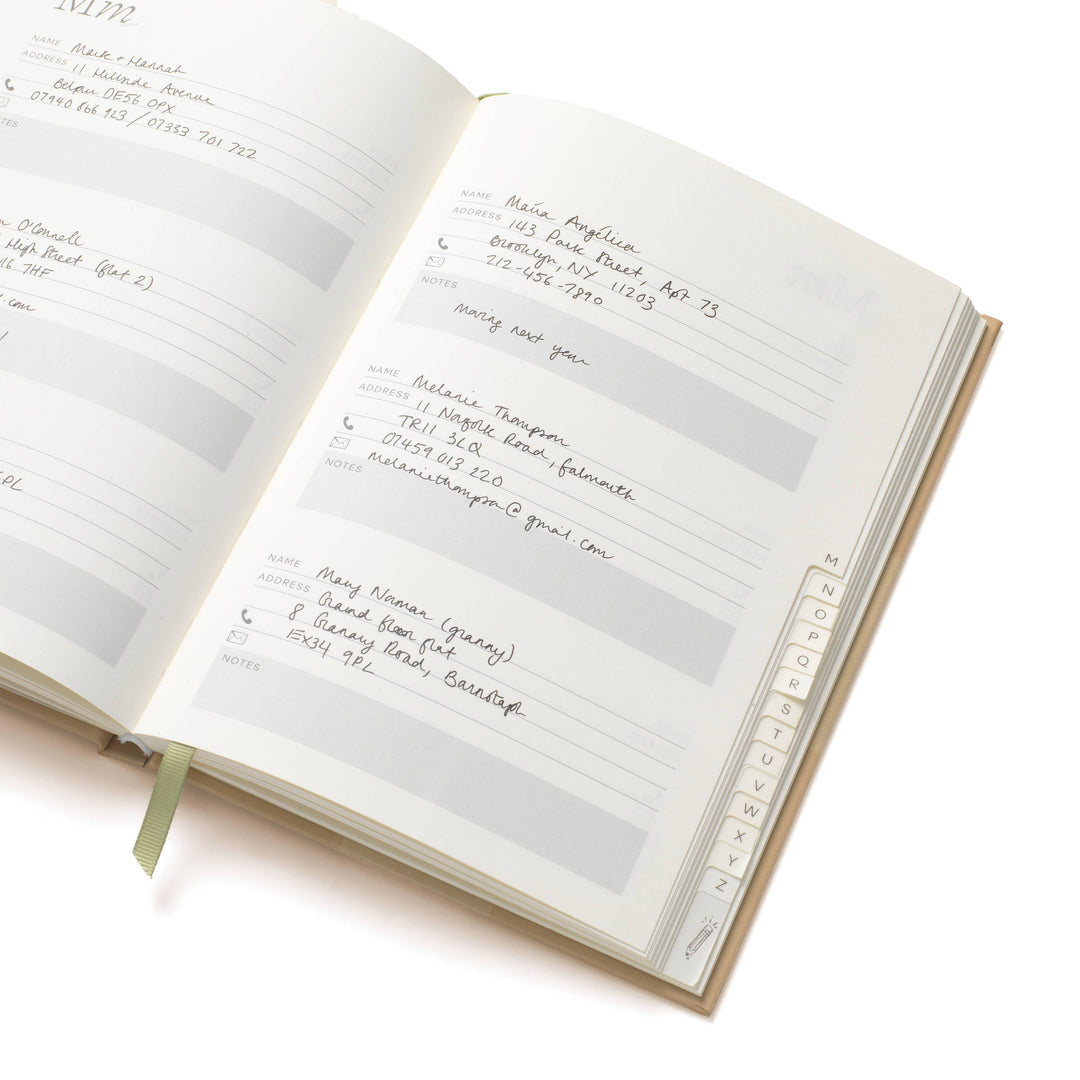 Mm
NAME Mark + Hannah
ADDRESS 11 Hillside Avenue
Belper DE56 0PX
07940 866 923 / 07333 701 722
NOTES
O'Connell
High Street (flat 2)
7HF
.com
9PL
NAME Maria Angélica
ADDRESS 143 Park Street, Apt 73
Brooklyn, NY 11203
212-456-7890
NOTES
Moving next year
NAME Melanie Thompson
ADDRESS 11 Norfolk Road, Falmouth
TR11 3LQ
07459 013 220
melaniethompson@gmail.com
NOTES
NAME Mary Norman (granny)
ADDRESS Ground floor flat
8 Granary Road, Barnstaple
EX34 9PL
NOTES
M
N
O
P
Q
R
S
T
U
V
W
X
Y
Z